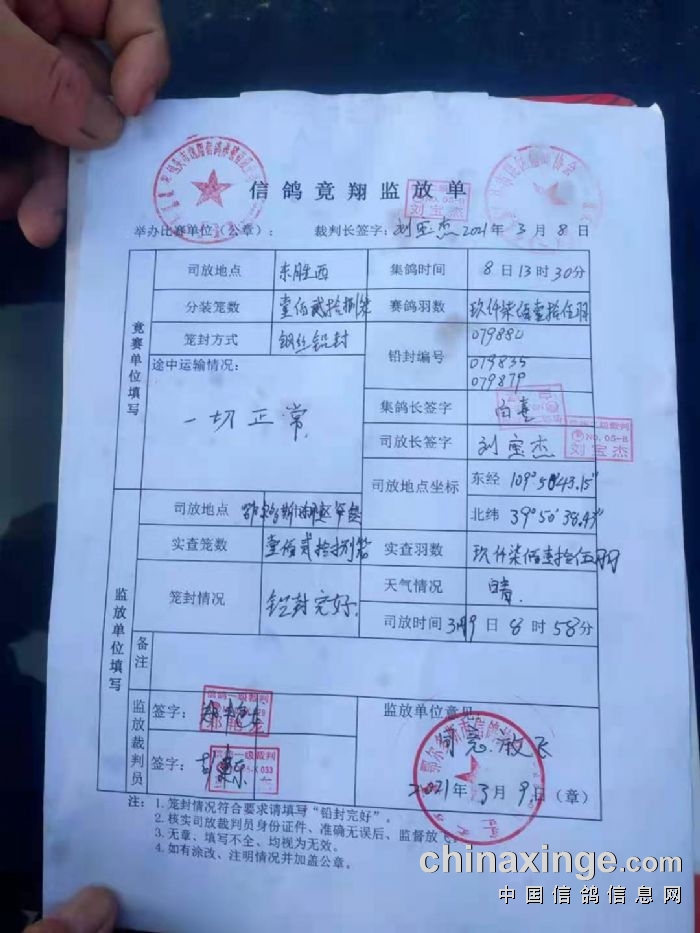 信鸽竞翔监放单
举办比赛单位（公章）： 裁判长签字：刘宝杰 2021年 3月 8日
NO.05-8
刘宝杰
竞赛单位填写
司放地点 东胜西 集鸽时间 8日13时30分
分装笼数 壹佰贰拾捌笼 赛鸽羽数 玖仟柒佰壹拾伍羽
笼封方式 钢丝铅封 铅封编号 079880
079835
079879
途中运输情况：
一切正常
集鸽长签字 白
司放长签字 刘宝杰
级裁判
NO.05-8
刘宝杰
司放地点坐标 东经 109°50′43.15″
北纬 39°50′38.47″
监放单位填写
司放地点
实查笼数 壹佰贰拾捌笼 实查羽数 玖仟柒佰壹拾伍羽
笼封情况 铅封完好 天气情况 晴
司放时间 3月9日8时58分
备注
监放裁判员
签字：
信鸽一级裁判
签字：
一级裁判
033
监放单位意见
同意放飞
2021年3月9日（章）
注： 1. 笼封情况符合要求请填写“铅封完好”。
2. 核实司放裁判员身份证件、准确无误后、监督放飞
3. 无章、填写不全、均视为无效。
4. 如有涂改、注明情况并加盖公章。
chinaxinge.com
中国信鸽信息网